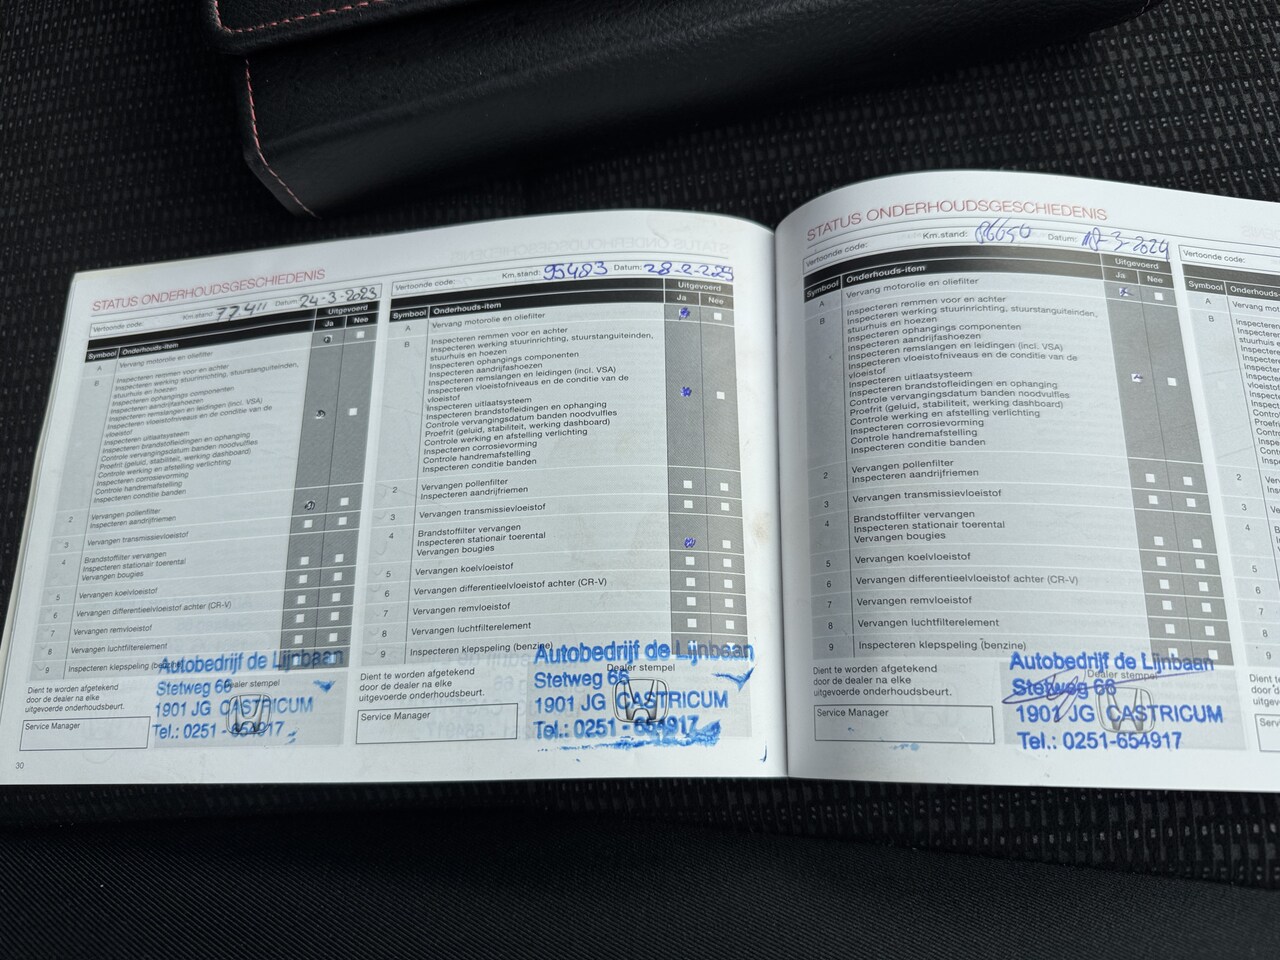 STATUS ONDERHOUDSGESCHIEDENIS
Vertoonde code: Km.stand: 77411 Datum: 24-3-2023
Symbool Onderhouds-item Uitgevoerd
Ja Nee
A Vervang motorolie en oliefilter
B Inspecteren remmen voor en achter
Inspecteren werking stuurinrichting, stuurstanguiteinden,
stuurhuis en hoezen
Inspecteren ophangings componenten
Inspecteren aandrijfashoezen
Inspecteren remslangen en leidingen (incl. VSA)
Inspecteren vloeistofniveaus en de conditie van de
vloeistof
Inspecteren uitlaatsysteem
Inspecteren brandstofleidingen en ophanging
Controle vervangingsdatum banden noodvulfles
Proefrit (geluid, stabiliteit, werking dashboard)
Controle werking en afstelling verlichting
Inspecteren corrosievorming
Controle handremafstelling
Inspecteren conditie banden
2 Vervangen pollenfilter
Inspecteren aandrijfriemen
3 Vervangen transmissievloeistof
4 Brandstoffilter vervangen
Inspecteren stationair toerental
Vervangen bougies
5 Vervangen koelvloeistof
6 Vervangen differentieelvloeistof achter (CR-V)
7 Vervangen remvloeistof
8 Vervangen luchtfilterelement
9 Inspecteren klepspeling
Dient te worden afgetekend
door de dealer na elke
uitgevoerde onderhoudsbeurt.
Service Manager
Dealer stempel
Autobedrijf de Lijnbaan
Stetweg 66
1901 JG CASTRICUM
Tel.: 0251-654917
30
Vertoonde code: Km.stand: 95483 Datum: 28-2-2025
Symbool Onderhouds-item Uitgevoerd
Ja Nee
A Vervang motorolie en oliefilter
B Inspecteren remmen voor en achter
Inspecteren werking stuurinrichting, stuurstanguiteinden,
stuurhuis en hoezen
Inspecteren ophangings componenten
Inspecteren aandrijfashoezen
Inspecteren remslangen en leidingen (incl. VSA)
Inspecteren vloeistofniveaus en de conditie van de
vloeistof
Inspecteren uitlaatsysteem
Inspecteren brandstofleidingen en ophanging
Controle vervangingsdatum banden noodvulfles
Proefrit (geluid, stabiliteit, werking dashboard)
Controle werking en afstelling verlichting
Inspecteren corrosievorming
Controle handremafstelling
Inspecteren conditie banden
2 Vervangen pollenfilter
Inspecteren aandrijfriemen
3 Vervangen transmissievloeistof
4 Brandstoffilter vervangen
Inspecteren stationair toerental
Vervangen bougies
5 Vervangen koelvloeistof
6 Vervangen differentieelvloeistof achter (CR-V)
7 Vervangen remvloeistof
8 Vervangen luchtfilterelement
9 Inspecteren klepspeling (benzine)
Dient te worden afgetekend
door de dealer na elke
uitgevoerde onderhoudsbeurt.
Service Manager
Dealer stempel
Autobedrijf de Lijnbaan
Stetweg 66
1901 JG CASTRICUM
Tel.: 0251-654917
STATUS ONDERHOUDSGESCHIEDENIS
Vertoonde code: Km.stand: 86650 Datum: 18-3-2024
Symbool Onderhouds-item Uitgevoerd
Ja Nee
A Vervang motorolie en oliefilter
B Inspecteren remmen voor en achter
Inspecteren werking stuurinrichting, stuurstanguiteinden,
stuurhuis en hoezen
Inspecteren ophangings componenten
Inspecteren aandrijfashoezen
Inspecteren remslangen en leidingen (incl. VSA)
Inspecteren vloeistofniveaus en de conditie van de
vloeistof
Inspecteren uitlaatsysteem
Inspecteren brandstofleidingen en ophanging
Controle vervangingsdatum banden noodvulfles
Proefrit (geluid, stabiliteit, werking dashboard)
Controle werking en afstelling verlichting
Inspecteren corrosievorming
Controle handremafstelling
Inspecteren conditie banden
2 Vervangen pollenfilter
Inspecteren aandrijfriemen
3 Vervangen transmissievloeistof
4 Brandstoffilter vervangen
Inspecteren stationair toerental
Vervangen bougies
5 Vervangen koelvloeistof
6 Vervangen differentieelvloeistof achter (CR-V)
7 Vervangen remvloeistof
8 Vervangen luchtfilterelement
9 Inspecteren klepspeling (benzine)
Dient te worden afgetekend
door de dealer na elke
uitgevoerde onderhoudsbeurt.
Service Manager
Dealer stempel
Autobedrijf de Lijnbaan
Stetweg 66
1901 JG CASTRICUM
Tel.: 0251-654917
Vertoonde code:
Symbool
A
B
2
3
4
5
6
7
8
9